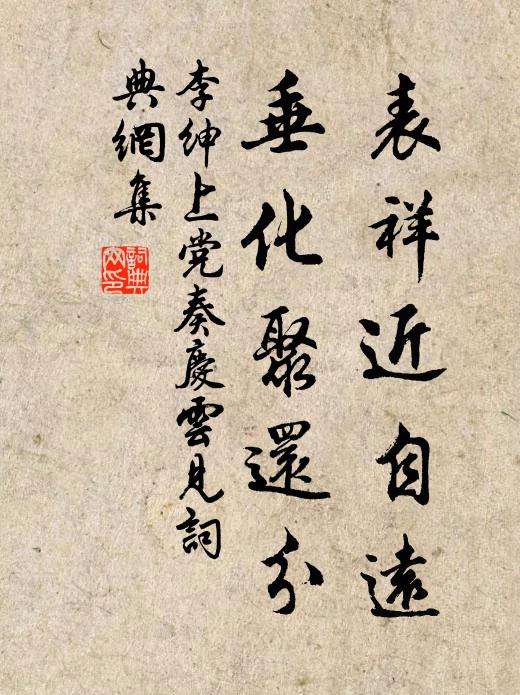 表祥近自遠
垂化聚還分
李紳上党奏慶雲見詞
典網集
詞典
网印